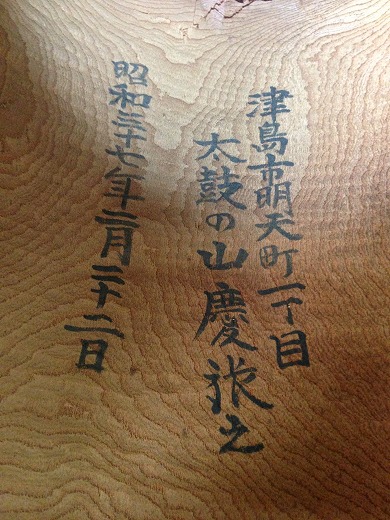 津島市明天町一丁目
太鼓の山慶張之
昭和三十七年二月二十二日